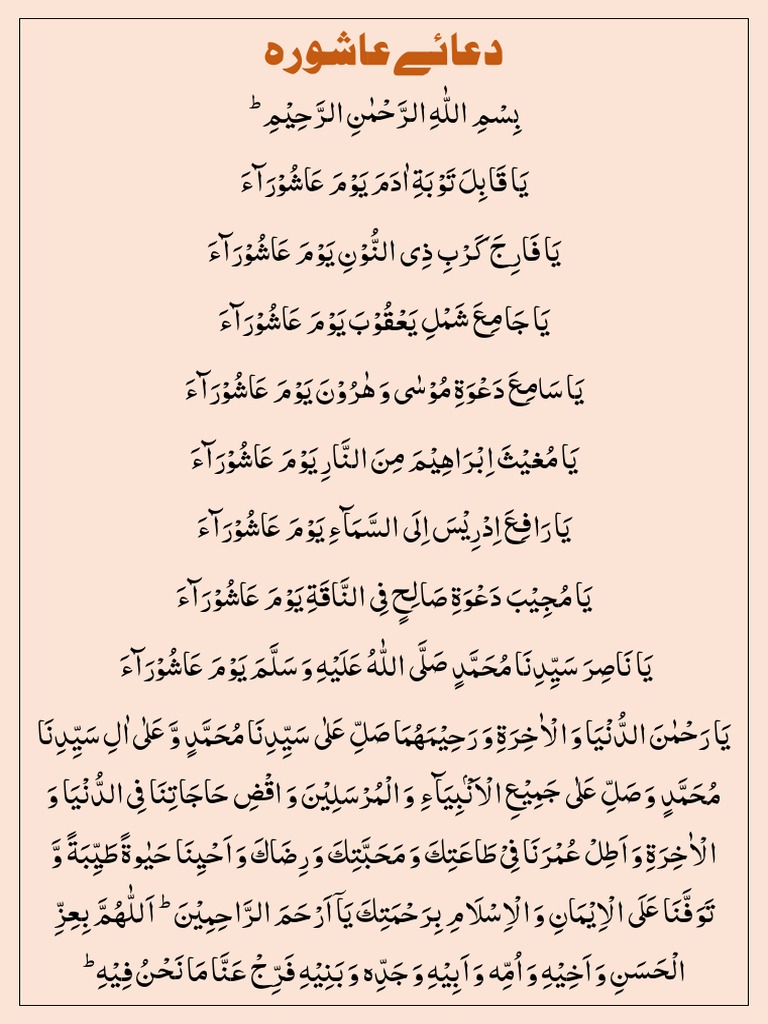 دعائے عاشورہ
بِسْمِ اللّٰهِ الرَّحْمٰنِ الرَّحِيْمِ ؕ
يَا قَابِلَ تَوْبَةِ اٰدَمَ يَوْمَ عَاشُوْرَآءَ
يَا فَارِجَ كَرْبِ ذِى النُّوْنِ يَوْمَ عَاشُوْرَآءَ
يَا جَامِعَ شَمْلِ يَعْقُوْبَ يَوْمَ عَاشُوْرَآءَ
يَا سَامِعَ دَعْوَةِ مُوْسٰى وَ هٰرُوْنَ يَوْمَ عَاشُوْرَآءَ
يَا مُغِيْثَ اِبْرَاهِيْمَ مِنَ النَّارِ يَوْمَ عَاشُوْرَآءَ
يَا رَافِعَ اِدْرِيْسَ اِلَى السَّمَآءِ يَوْمَ عَاشُوْرَآءَ
يَا مُجِيْبَ دَعْوَةِ صَالِحٍ فِى النَّاقَةِ يَوْمَ عَاشُوْرَآءَ
يَا نَاصِرَ سَيِّدِنَا مُحَمَّدٍ صَلَّى اللّٰهُ عَلَيْهِ وَ سَلَّمَ يَوْمَ عَاشُوْرَآءَ
يَا رَحْمٰنَ الدُّنْيَا وَ الْاٰخِرَةِ وَ رَحِيْمَهُمَا صَلِّ عَلٰى سَيِّدِنَا مُحَمَّدٍ وَّ عَلٰى اٰلِ سَيِّدِنَا
مُحَمَّدٍ وَ صَلِّ عَلٰى جَمِيْعِ الْاَنْۢبِيَآءِ وَ الْمُرْسَلِيْنَ وَ اقْضِ حَاجَاتِنَا فِى الدُّنْيَا وَ
الْاٰخِرَةِ وَ اَطِلْ عُمْرَنَا فِىْ طَاعَتِكَ وَ مَحَبَّتِكَ وَ رِضَاكَ وَ اَحْيِنَا حَيٰوةً طَيِّبَةً وَّ
تَوَفَّنَا عَلَى الْاِيْمَانِ وَ الْاِسْلَامِ بِرَحْمَتِكَ يَآ اَرْحَمَ الرَّاحِمِيْنَ ؕ اَللّٰهُمَّ بِعِزِّ
الْحَسَنِ وَ اَخِيْهِ وَ اُمِّهٖ وَ اَبِيْهِ وَ جَدِّهٖ وَ بَنِيْهِ فَرِّجْ عَنَّا مَا نَحْنُ فِيْهِ ؕ